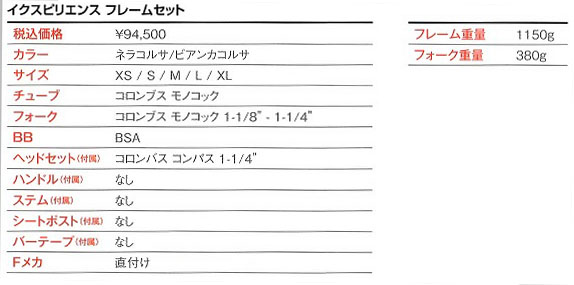 イクスピリエンス フレームセット
税込価格 ¥94,500
カラー ネラコルサ/ビアンカコルサ
サイズ XS / S / M / L / XL
チューブ コロンブス モノコック
フォーク コロンブス モノコック 1-1/8" - 1-1/4"
BB BSA
ヘッドセット(付属) コロンバス コンパス 1-1/4"
ハンドル(付属) なし
ステム(付属) なし
シートポスト(付属) なし
バーテープ(付属) なし
Fメカ 直付け
フレーム重量 1150g
フォーク重量 380g